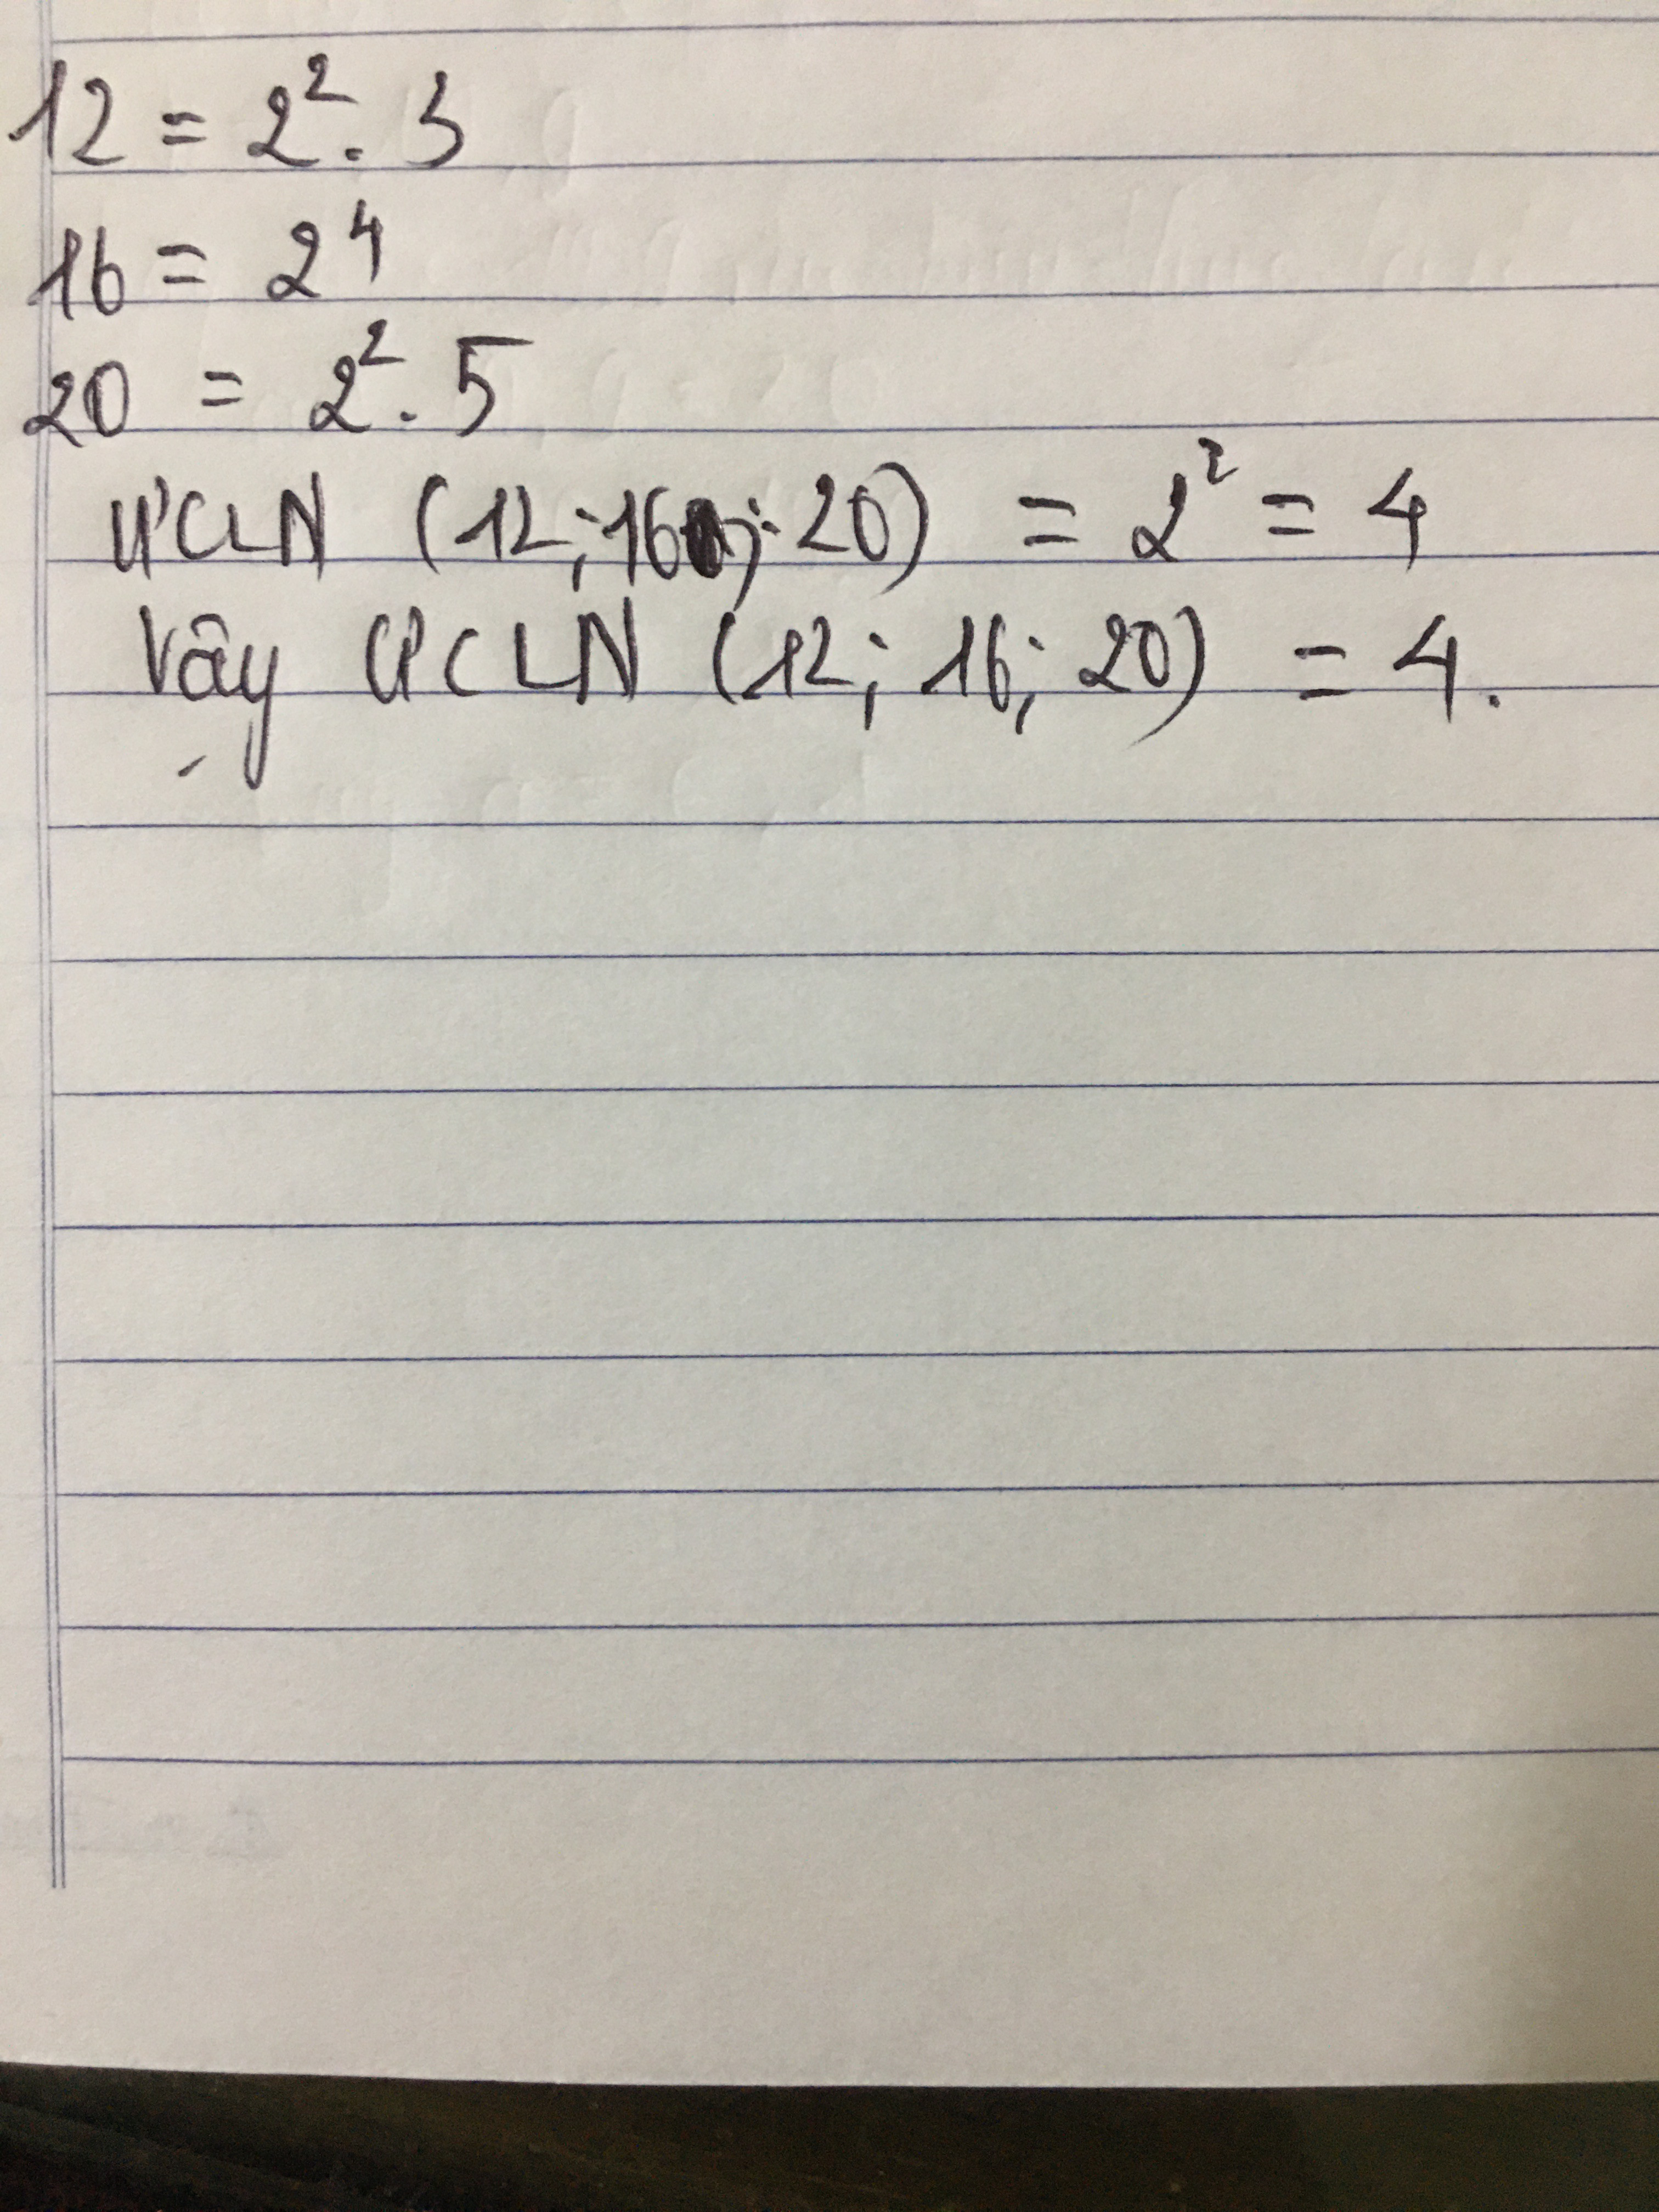 12 = 2². 3
16 = 2⁴
20 = 2². 5
ƯCLN (12; 16; 20) = 2² = 4
Vậy ƯCLN (12; 16; 20) = 4.